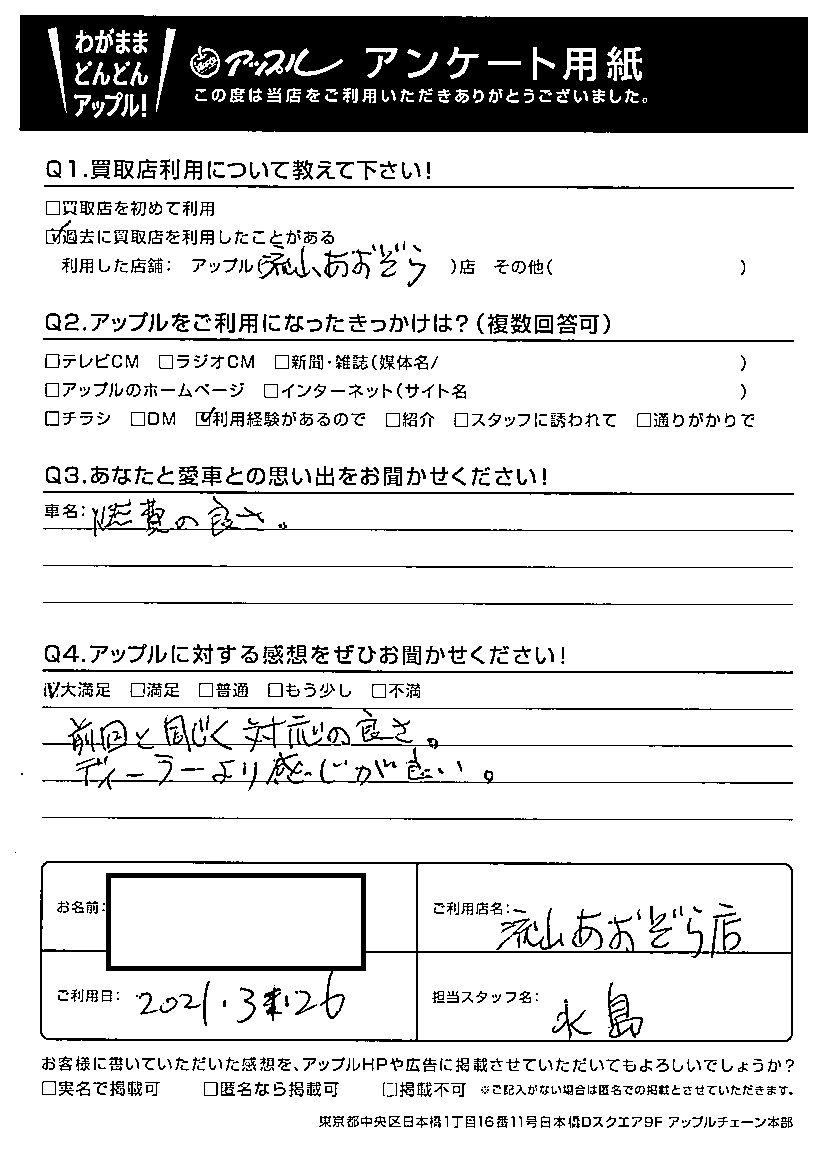 わがまま
どんどん
アップル!
アップル アンケート用紙
この度は当店をご利用いただきありがとうございました。
Q1.買取店利用について教えて下さい!
□買取店を初めて利用
☑過去に買取店を利用したことがある
利用した店舗: アップル(流山あおぞら )店 その他( )
Q2.アップルをご利用になったきっかけは?(複数回答可)
□テレビCM □ラジオCM □新聞・雑誌(媒体名/ )
□アップルのホームページ □インターネット(サイト名 )
□チラシ □DM ☑利用経験があるので □紹介 □スタッフに誘われて □通りがかりで
Q3.あなたと愛車との思い出をお聞かせください!
車名: 燃費の良さ。
Q4.アップルに対する感想をぜひお聞かせください!
☑大満足 □満足 □普通 □もう少し □不満
前回と同じく対応の良さ。
ディーラーより感じが良い。
お名前:
ご利用店名: 流山あおぞら店
ご利用日: 2021.3.26
担当スタッフ名: 水島
お客様に書いていただいた感想を、アップルHPや広告に掲載させていただいてもよろしいでしょうか?
□実名で掲載可 □匿名なら掲載可 □掲載不可 ※ご記入がない場合は匿名での掲載とさせていただきます。
東京都中央区日本橋1丁目16番11号日本橋Dスクエア9F アップルチェーン本部